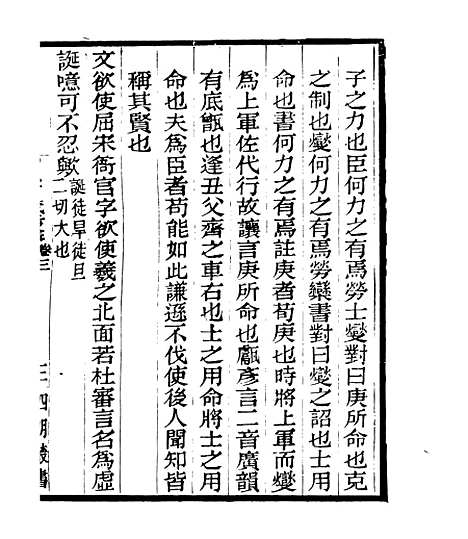 子之力也臣何力之有焉勞士燮對曰庚所命也克
之制也燮何力之有焉勞欒書對曰燮之詔也士用
命也書何力之有焉註庚者荀庚也時將上軍而燮
爲上軍佐代行故讓言庚所命也甗彥言二音廣韻
有底甑也逢丑父齊之車右也士之用命將士之用
命也夫爲臣者苟能如此謙遜不伐使後人聞知皆
稱其賢也
文欲使屈宋衙官字欲使羲之北面若杜審言名爲虛
誕噫可不忍歟誕徒旱徒旦二切大也
卷三
四明叢書